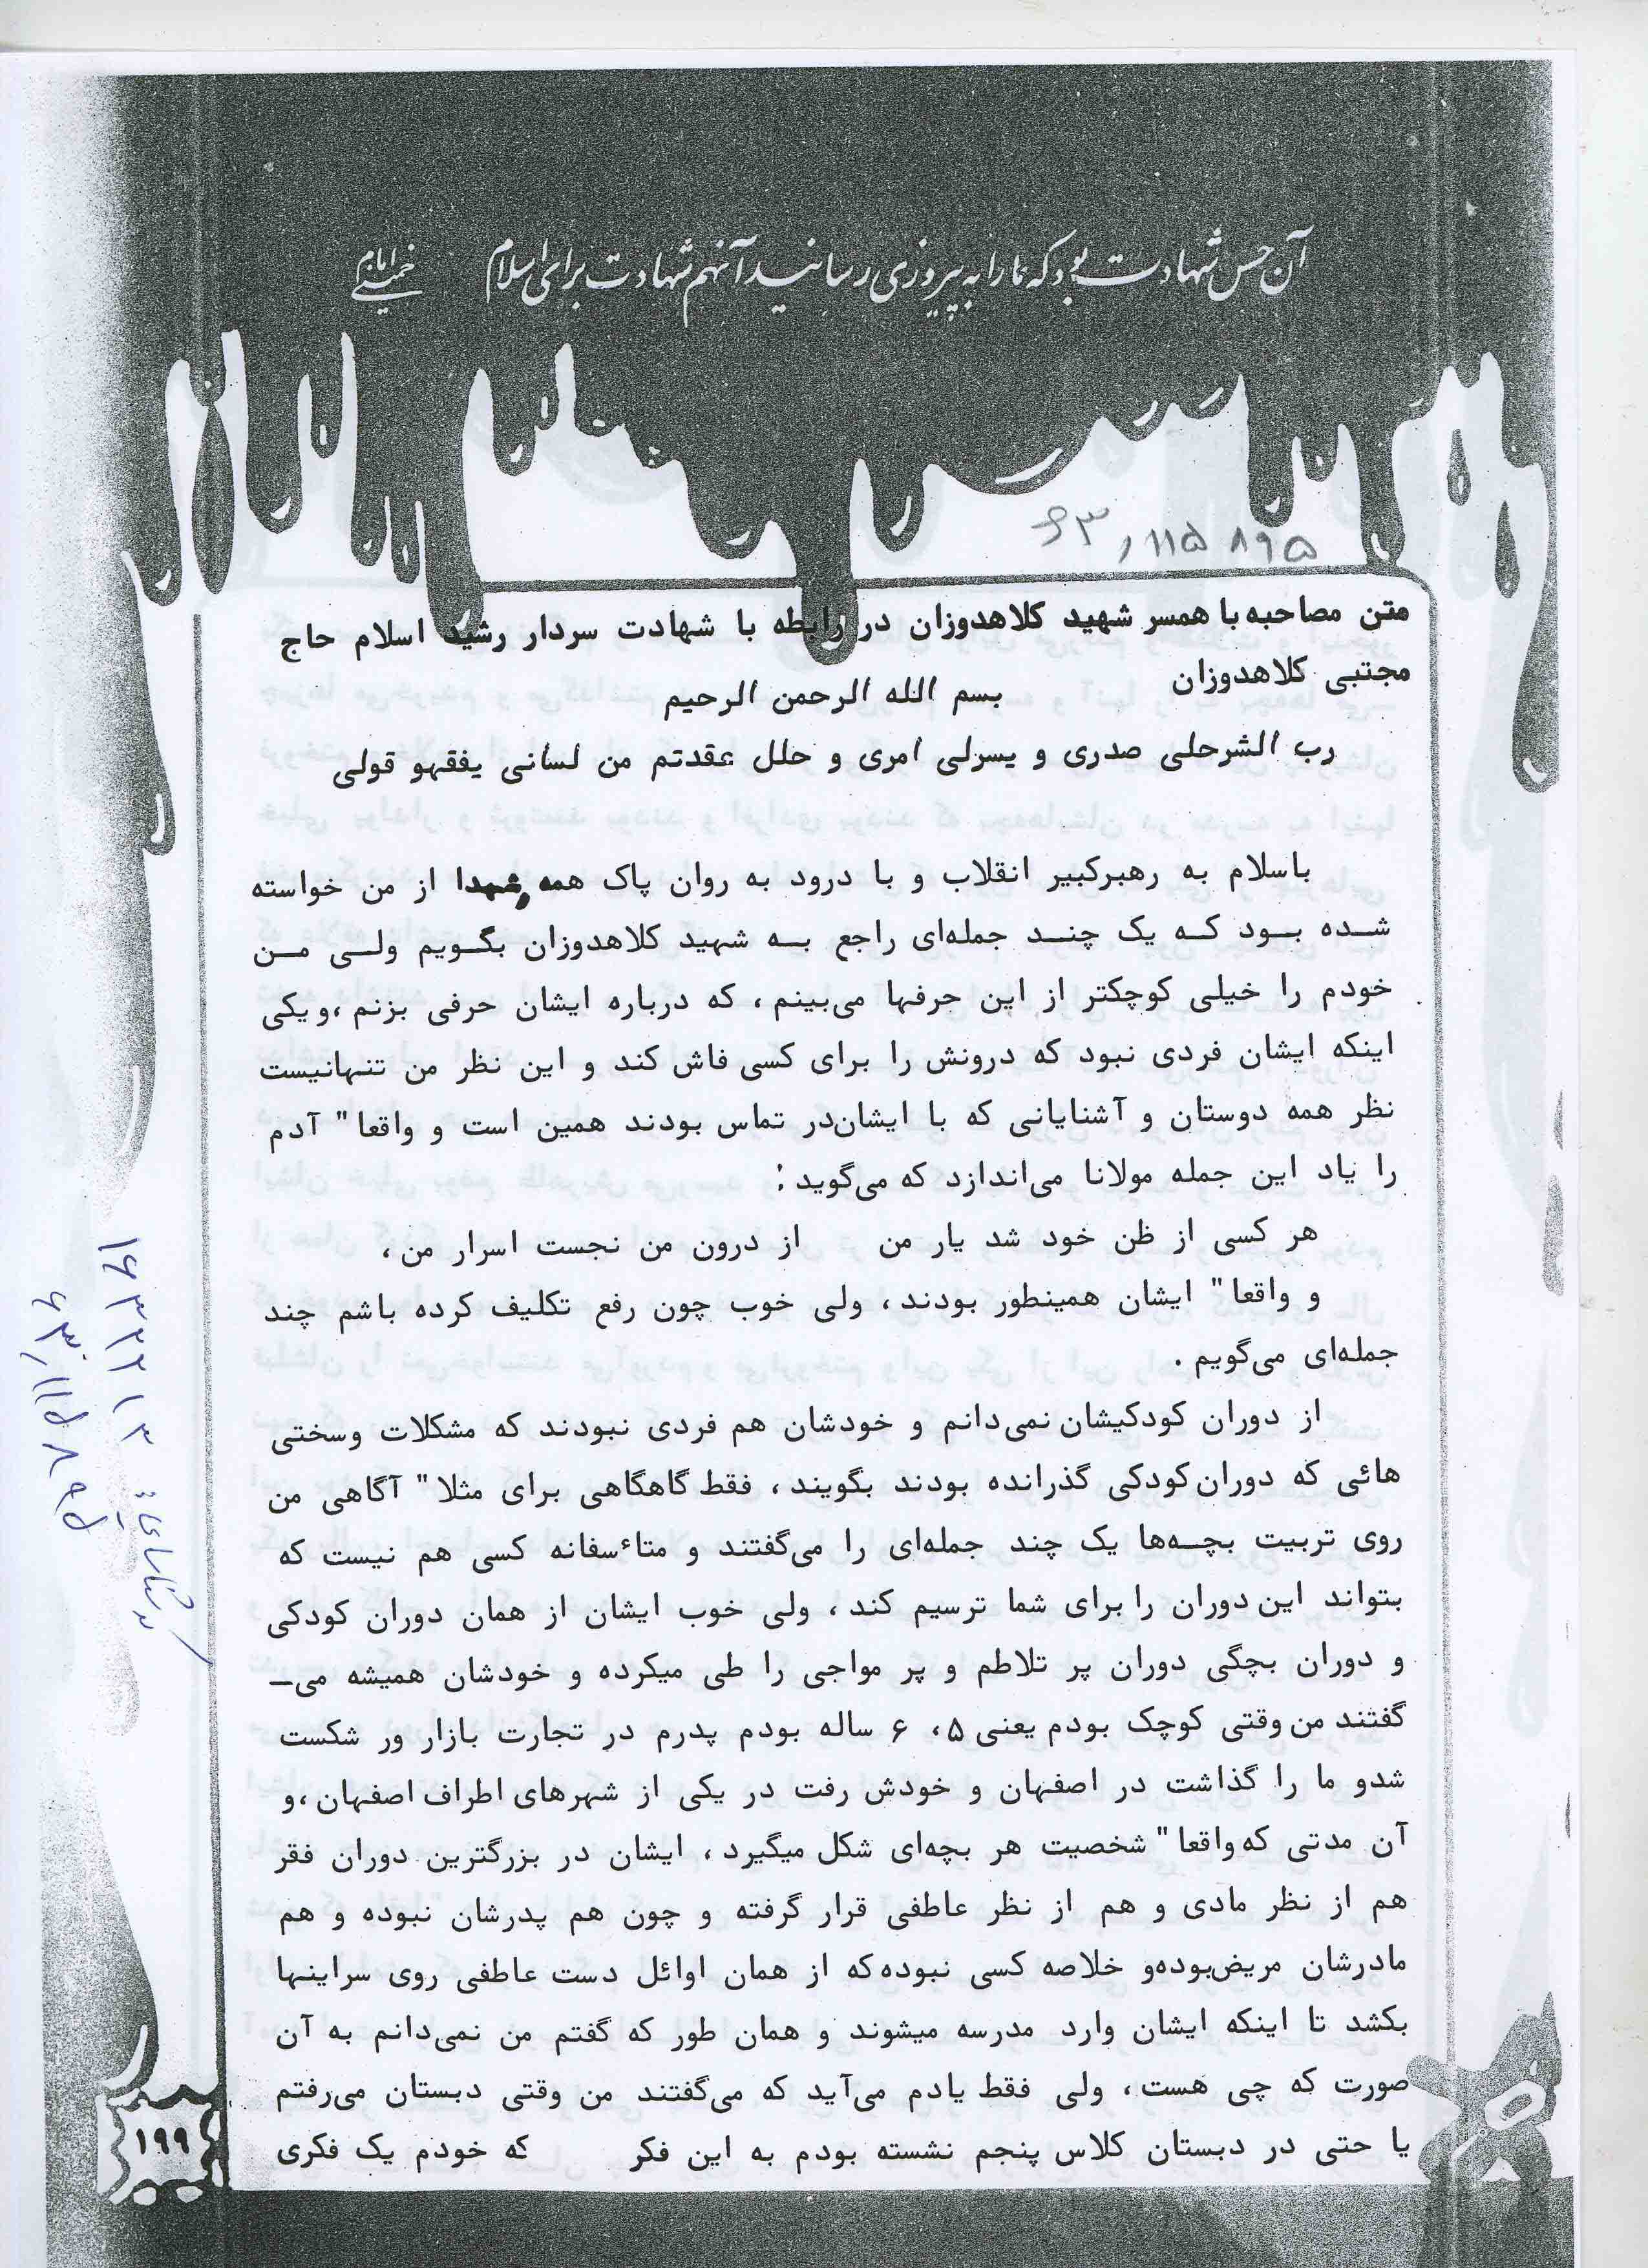 آن حس شهادت بود که ما را به پیروزی رسانید آنهم شهادت برای اسلام امام خمینی
۶۳,۱۱۵۸۹۵
متن مصاحبه با همسر شهید کلاهدوزان در رابطه با شهادت سردار رشید اسلام حاج
مجتبی کلاهدوزان
بسم الله الرحمن الرحیم
رب الشرحلی صدری و یسرلی امری و حلل عقدتم من لسانی یفقهو قولی
باسلام به رهبرکبیر انقلاب و با درود به روان پاک همه شهدا از من خواسته
شده بود که یک چند جمله‌ای راجع به شهید کلاهدوزان بگویم ولی من
خودم را خیلی کوچکتر از این حرفها می‌بینم، که درباره ایشان حرفی بزنم،ویکی
اینکه ایشان فردی نبود که درونش را برای کسی فاش کند و این نظر من تنهانیست
نظر همه دوستان و آشنایانی که با ایشان‌در تماس بودند همین است و واقعا" آدم
را یاد این جمله مولانا می‌اندازد که می‌گوید:
هر کسی از ظن خود شد یار من از درون من نجست اسرار من،
و واقعا" ایشان همینطور بودند، ولی خوب چون رفع تکلیف کرده باشم چند
جمله‌ای می‌گویم.
از دوران کودکیشان نمی‌دانم و خودشان هم فردی نبودند که مشکلات وسختی
هائی که دوران کودکی گذرانده بودند بگویند، فقط گاهگاهی برای مثلا" آگاهی من
روی تربیت بچه‌ها یک چند جمله‌ای را می‌گفتند و متاءسفانه کسی هم نیست که
بتواند این دوران را برای شما ترسیم کند، ولی خوب ایشان از همان دوران کودکی
و دوران بچگی دوران پر تلاطم و پر مواجی را طی میکرده و خودشان همیشه می‌ـ
گفتند من وقتی کوچک بودم یعنی ۵، ۶ ساله بودم پدرم در تجارت بازار ور شکست
شدو ما را گذاشت در اصفهان و خودش رفت در یکی از شهرهای اطراف اصفهان،و
آن مدتی که واقعا" شخصیت هر بچه‌ای شکل میگیرد، ایشان در بزرگترین دوران فقر
هم از نظر مادی و هم از نظر عاطفی قرار گرفته و چون هم پدرشان نبوده و هم
مادرشان مریض‌بوده‌و خلاصه کسی نبوده‌که از همان اوائل دست عاطفی روی سراینها
بکشد تا اینکه ایشان وارد مدرسه میشوند و همان طور که گفتم من نمی‌دانم به آن
صورت که چی هست، ولی فقط یادم می‌آید که می‌گفتند من وقتی دبستان می‌رفتم
یا حتی در دبستان کلاس پنجم نشسته بودم به این فکر که خودم یک فکری
۱۹۹
۱۶۳۲۲۱۳
۶۳,۱۱۵۸۹۵